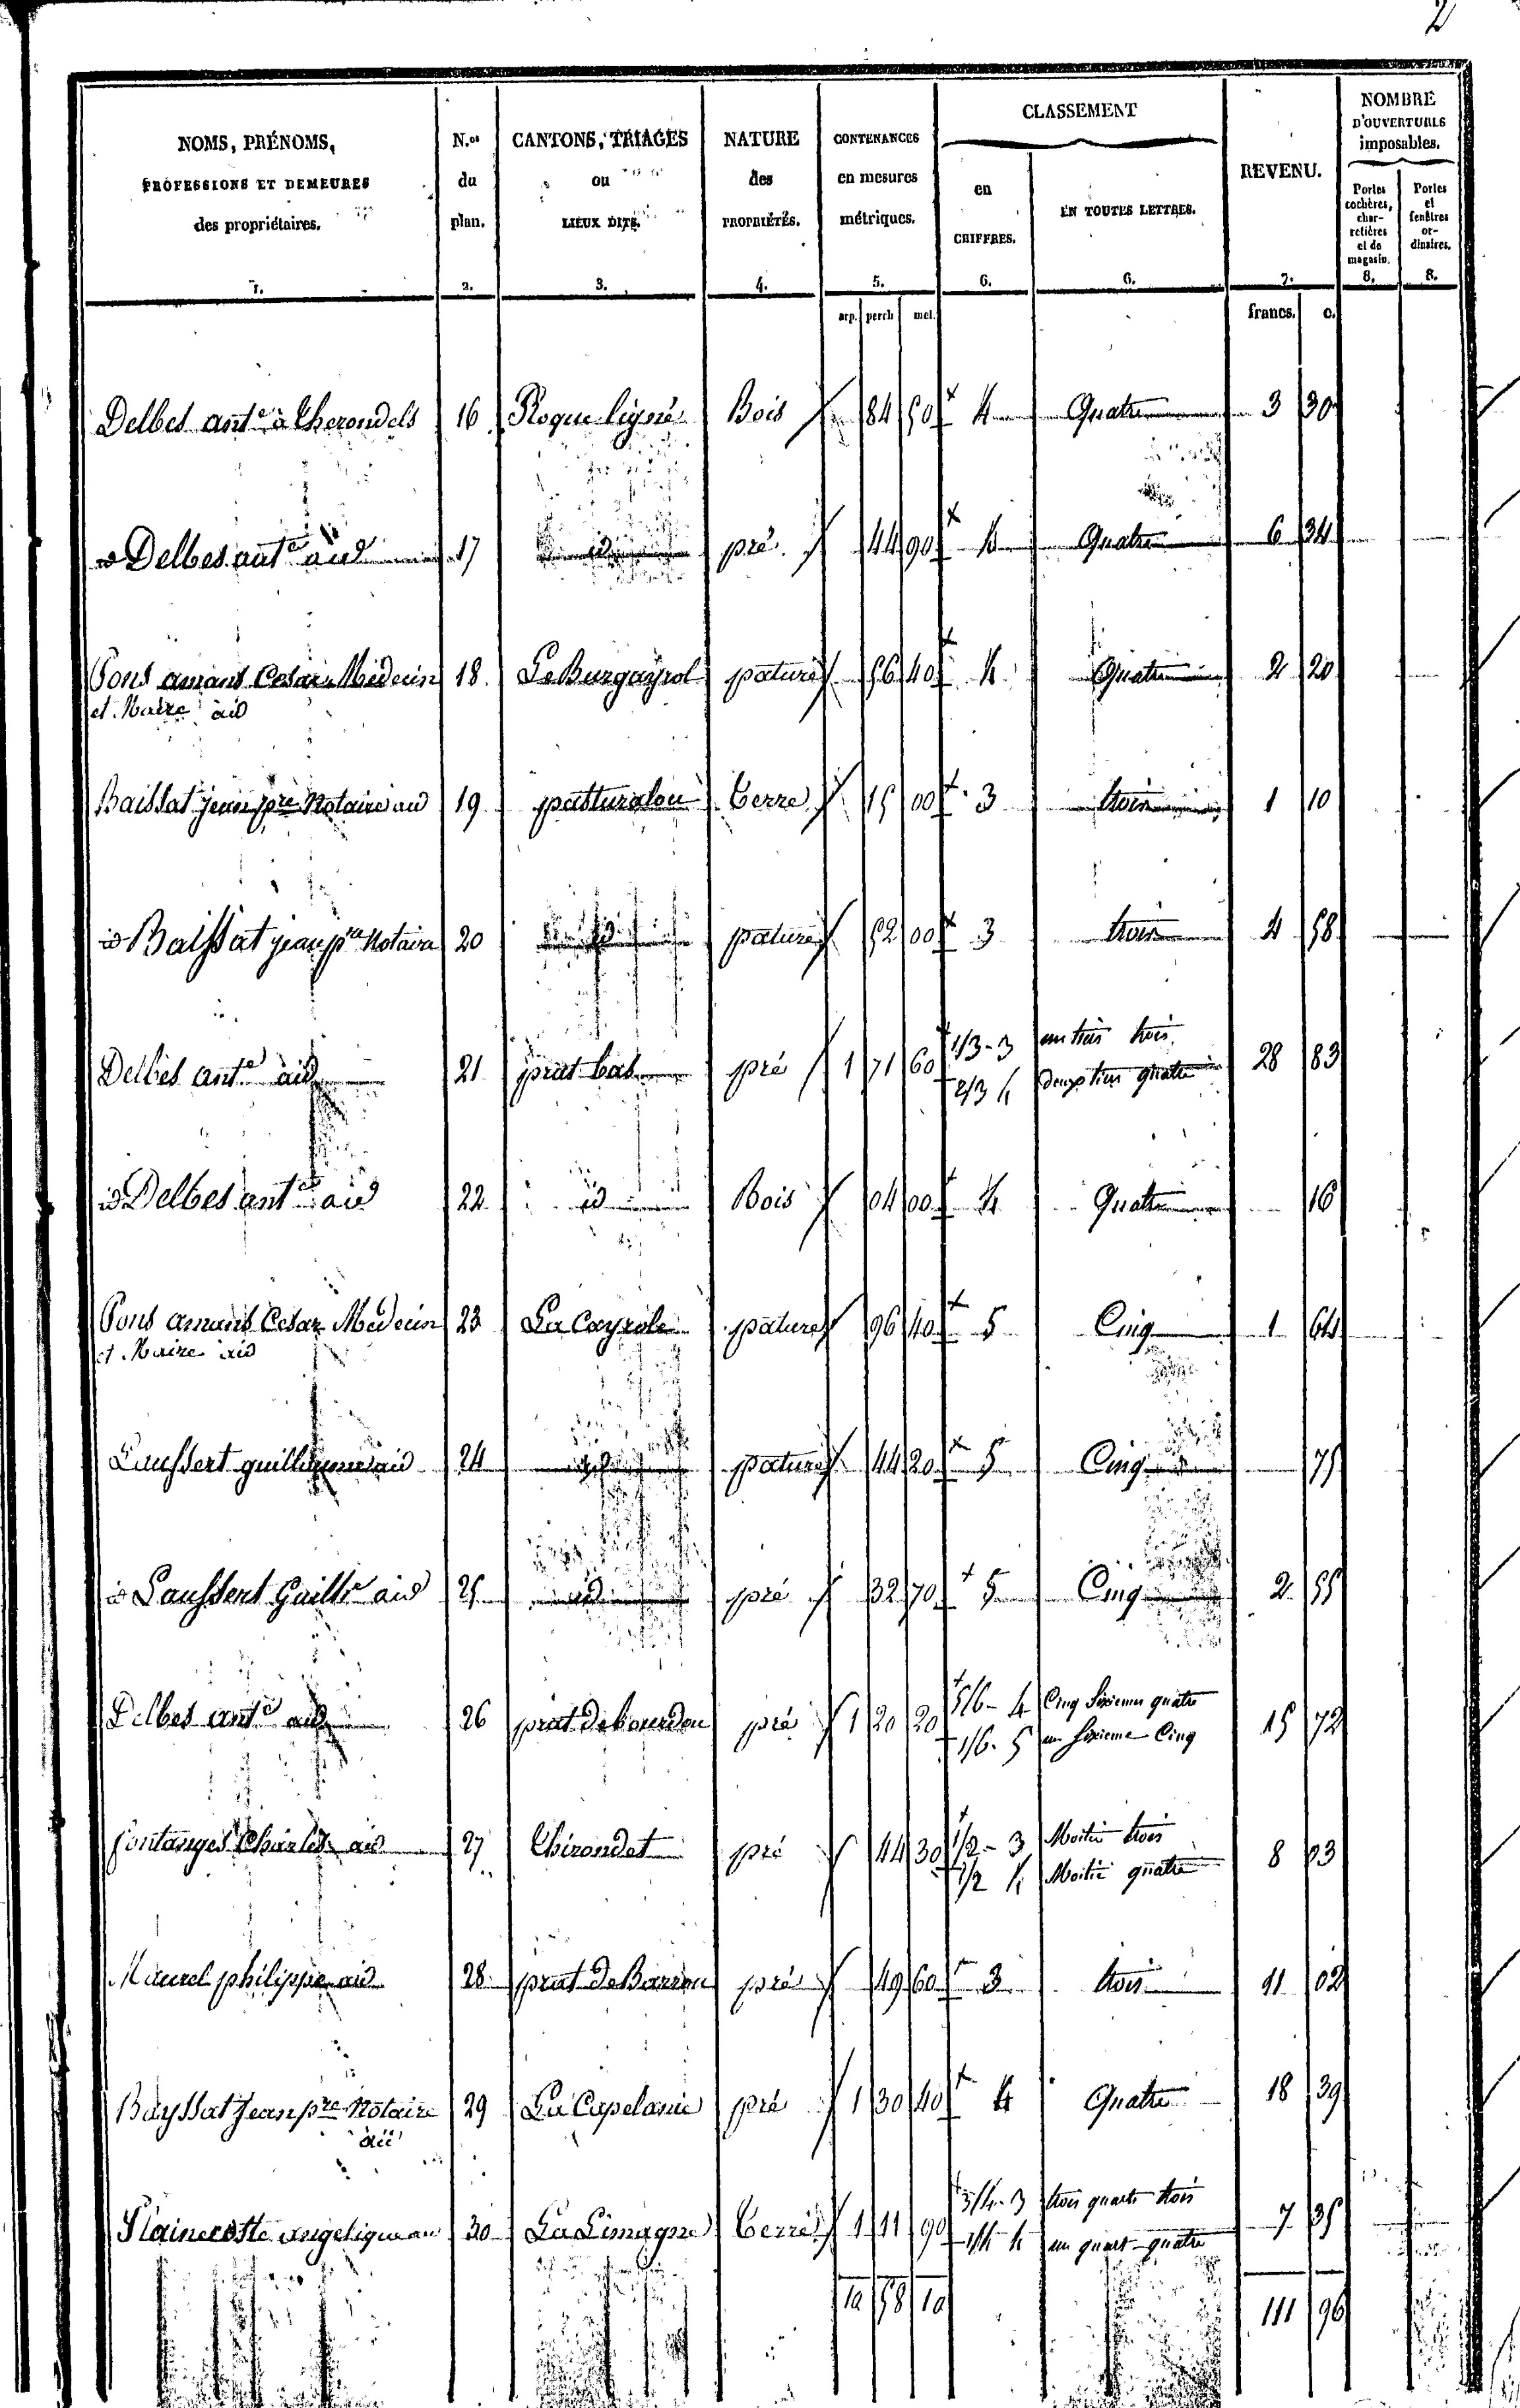 2
NOMS, PRÉNOMS, PROFESSIONS ET DEMEURES des propriétaires. 1.
N.os du plan. 2.
CANTONS, TRIAGES ou LIEUX DITS. 3.
NATURE des PROPRIÉTÉS. 4.
CONTENANCES en mesures métriques. 5.
CLASSEMENT
en CHIFFRES. 6.
EN TOUTES LETTRES. 6.
REVENU. 7.
NOMBRE D'OUVERTURES imposables.
Portes cochères, charretières et de magasin. 8.
Portes et fenêtres ordinaires. 8.
arp. perch met. francs. c.
Delbes ante à Therondels 16 Roque ligné Bois 84 50 4 Quatre 3 30
id Delbes ante aid 17 id pré 44 90 4 Quatre 6 34
Pons amans Cesar Médecin 18 Le Burgayrol pature 56 40 4 Quatre 2 20
et Maire aid
Baissat jean pre Notaire aid 19 patturalou Terre 15 00 3 trois 1 10
id Baissat jean pre Notaire 20 id pature 52 00 3 trois 4 58
Delbes ante aid 21 prat bas pré 1 71 60 1/3 - 3 un tiers trois 28 83
2/3 4 deux tiers quatre
id Delbes ante aid 22 id Bois 04 00 4 Quatre 16
Pons amans Cesar Médecin 23 La Cayrole pature 96 40 5 Cinq 1 64
et Maire aid
Laussert guillaume aid 24 id pature 44 20 5 Cinq 75
id Laussert Guille aid 25 id pré 32 70 5 Cinq 2 55
Delbes ante aid 26 prat de bourdou pré 1 20 20 5/6 - 4 Cinq Sixieme quatre 15 72
1/6 - 5 un Sixieme Cinq
fontanges Charles aid 27 Chirondet pré 44 30 1/2 - 3 Moitié trois 8 03
1/2 4 Moitié quatre
Maurel philippe aid 28 prat de Barrou pré 49 60 3 trois 11 02
Bayssat Jean pre Notaire 29 La Capelanie pré 1 30 40 4 Quatre 18 39
aid
Plainecoste angelique aid 30 La Limagne Terre 1 11 90 3/4 - 3 trois quarts trois 7 35
1/4 4 un quart quatre
10 58 10 111 96